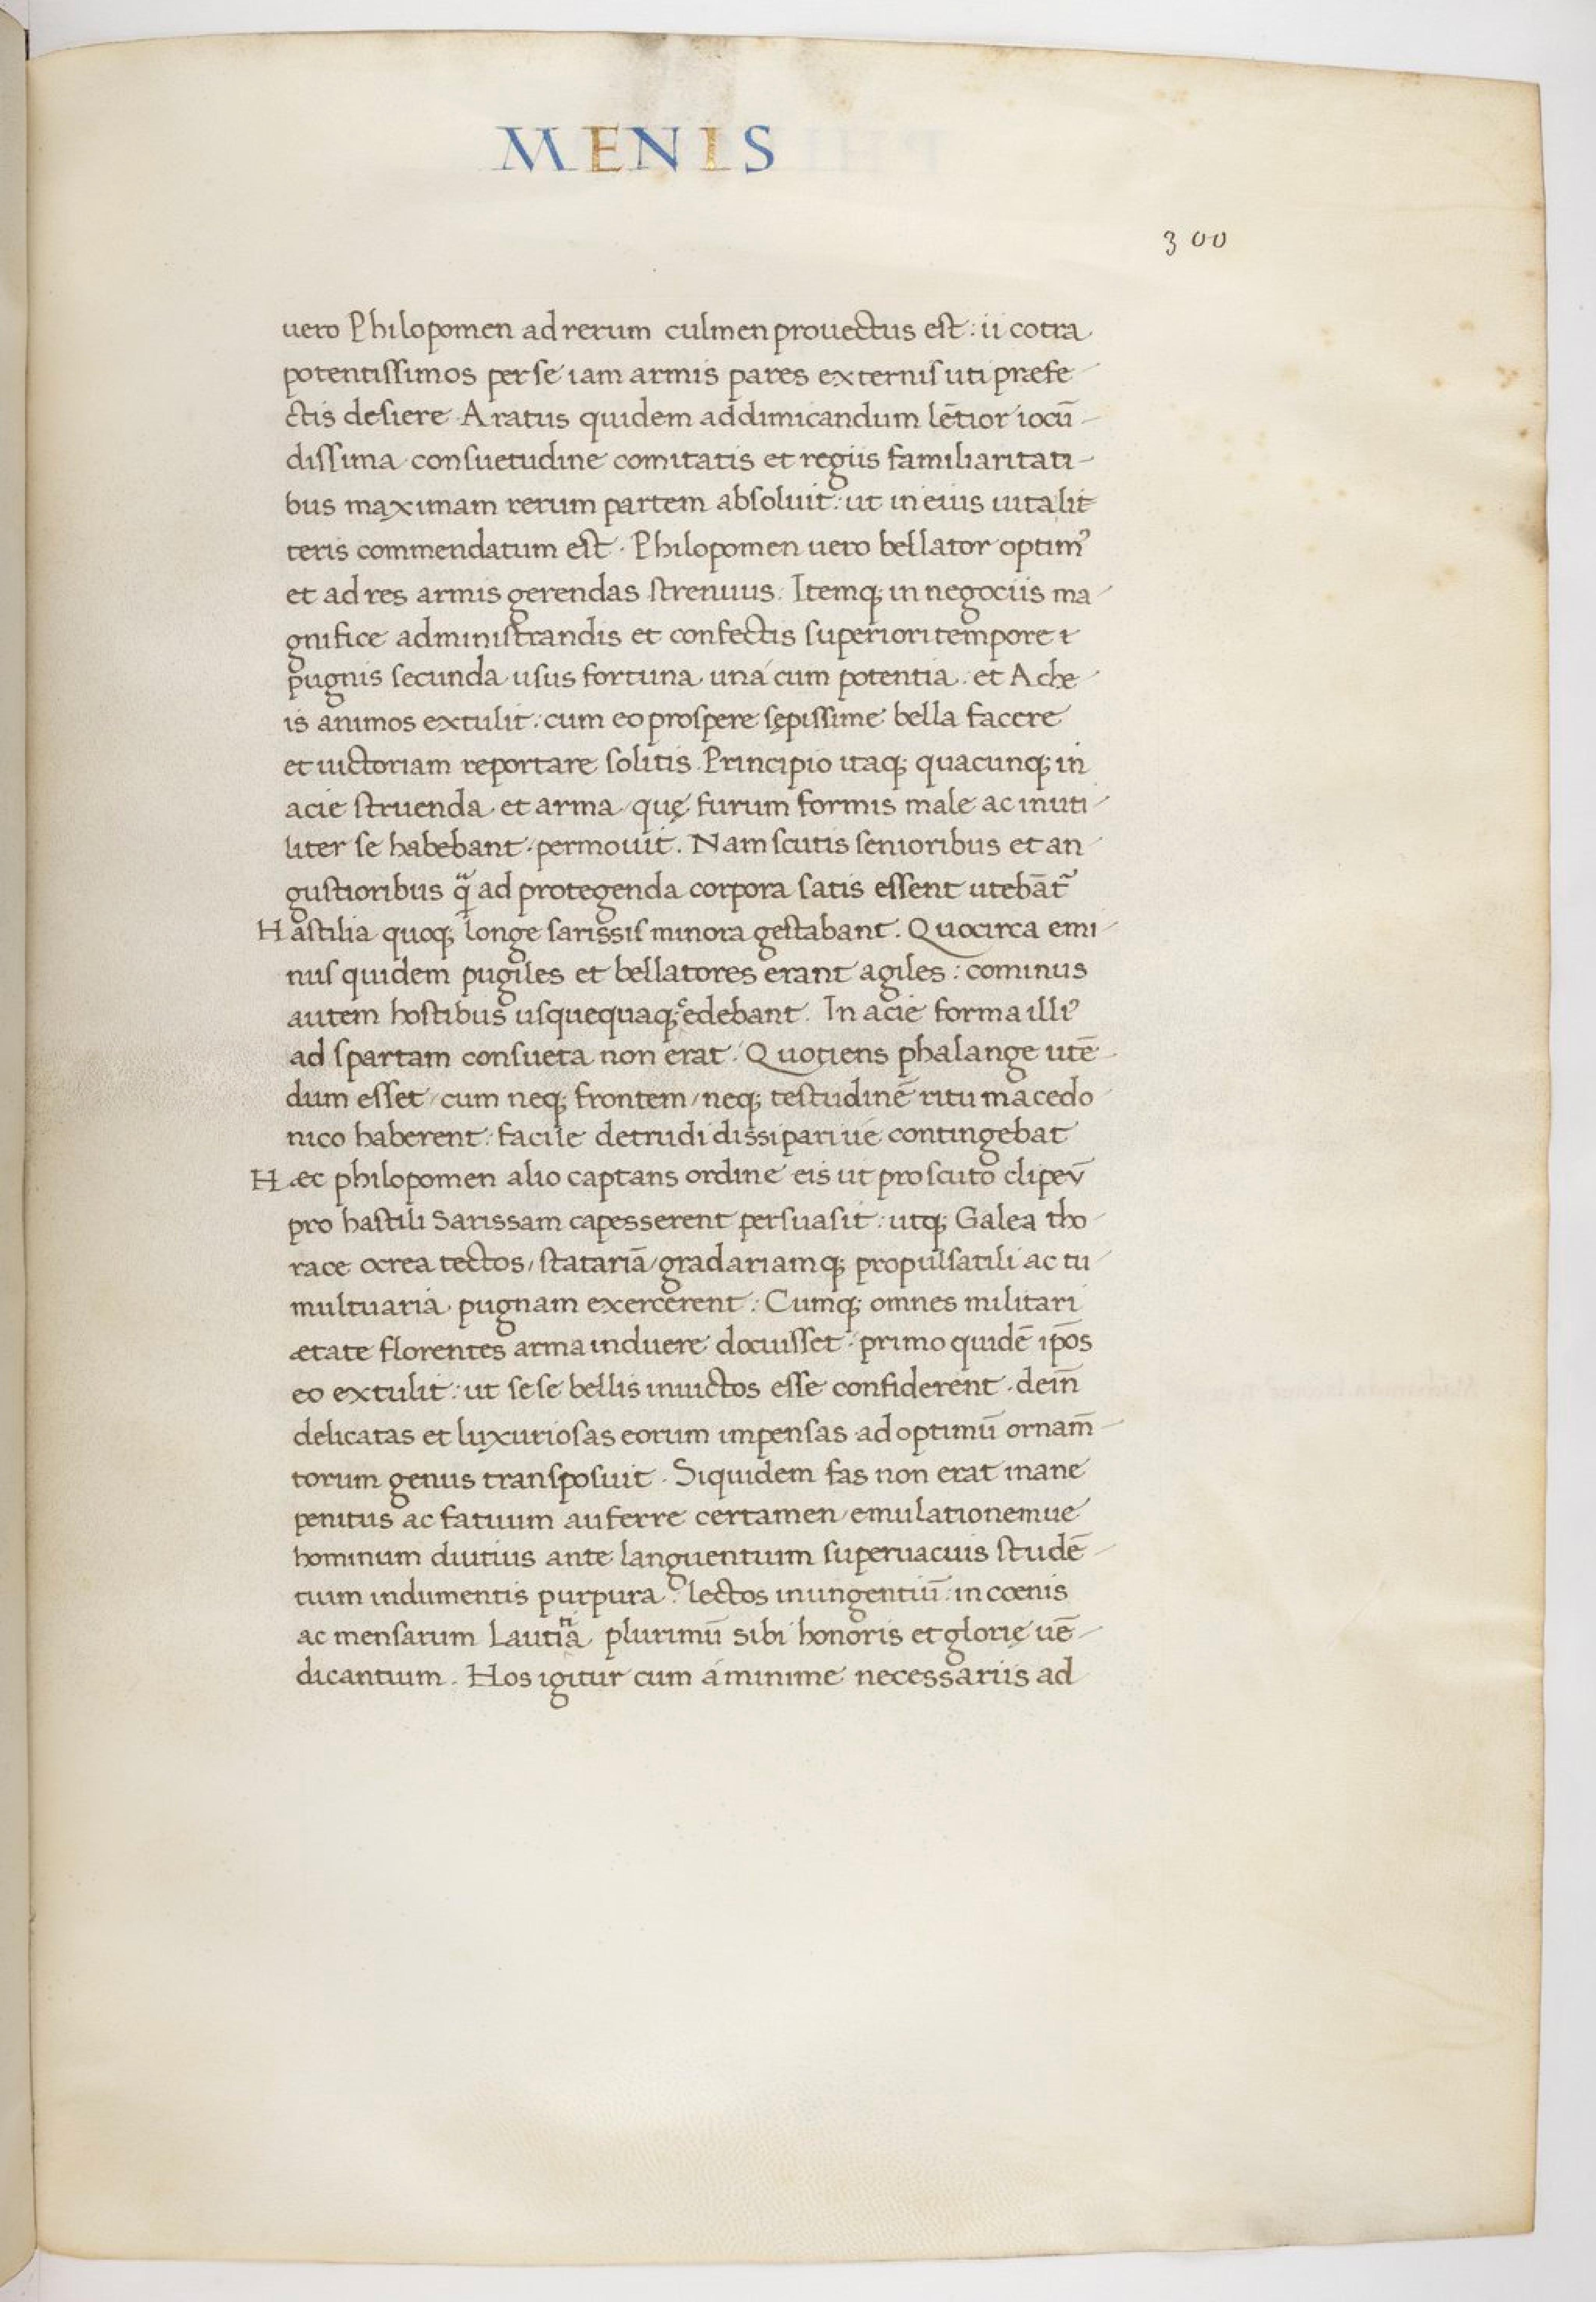 MENIS
300
uero Philopomen ad rerum culmen prouectus est: ii cotra
potentissimos per se iam armis pares externis uti præfe-
ctis desiere. Aratus quidem ad dimicandum lētior iocū-
dissima consuetudine comitatis et regiis familiaritati-
bus maximam rerum partem absoluit: ut in eius uita lit-
teris commendatum est. Philopomen uero bellator optim⁹
et ad res armis gerendas strenuus. Itemq; in negociis ma-
gnifice administrandis et confectis superiori tempore &
pugnis secunda usus fortuna una cum potentia. et Ache-
is animos extulit: cum eo prospere sępissime bella facere
et uictoriam reportare solitis. Principio itaq; quacunq; in
acie struenda et arma quę furum formis male ac inuti-
liter se habebant permouit. Nam scutis senioribus et an-
gustioribus qᷓ ad protegenda corpora satis essent utebāt᷑
Hastilia quoq; longe sarissis minora gestabant. Quocirca emi-
nus quidem pugiles et bellatores erant agiles: cominus
autem hostibus usquequaq; cedebant. In acie forma illi⁹
ad spartam consueta non erat. Quotiens phalange utē-
dum esset/cum neq; frontem/neq; testudinē ritu macedo-
nico haberent: facile detrudi dissipari ue contingebat
Hæc philopomen alio captans ordine eis ut pro scuto clipeū
pro hastili Sarissam capesserent persuasit: utq; Galea tho-
race ocrea tectos/statariā/gradariamq; propulsatili ac tu-
multuaria pugnam exercerent: Cumq; omnes militari
ætate florentes arma induere docuisset: primo quidē ip̄os
eo extulit: ut sese bellis inuictos esse confiderent. dein̄
delicatas et luxuriosas eorum impensas ad optimū ornam̄-
torum genus transposuit. Siquidem fas non erat inane
penitus ac fatuum auferre certamen emulationemue
hominum diutius ante languentium superuacuis studē-
tium indumentis purpura lectos inungentiū: in cœnis
ac mensarum Lautia plurimū sibi honoris et glorię uē-
dicantium. Hos igitur cum a minime necessariis ad